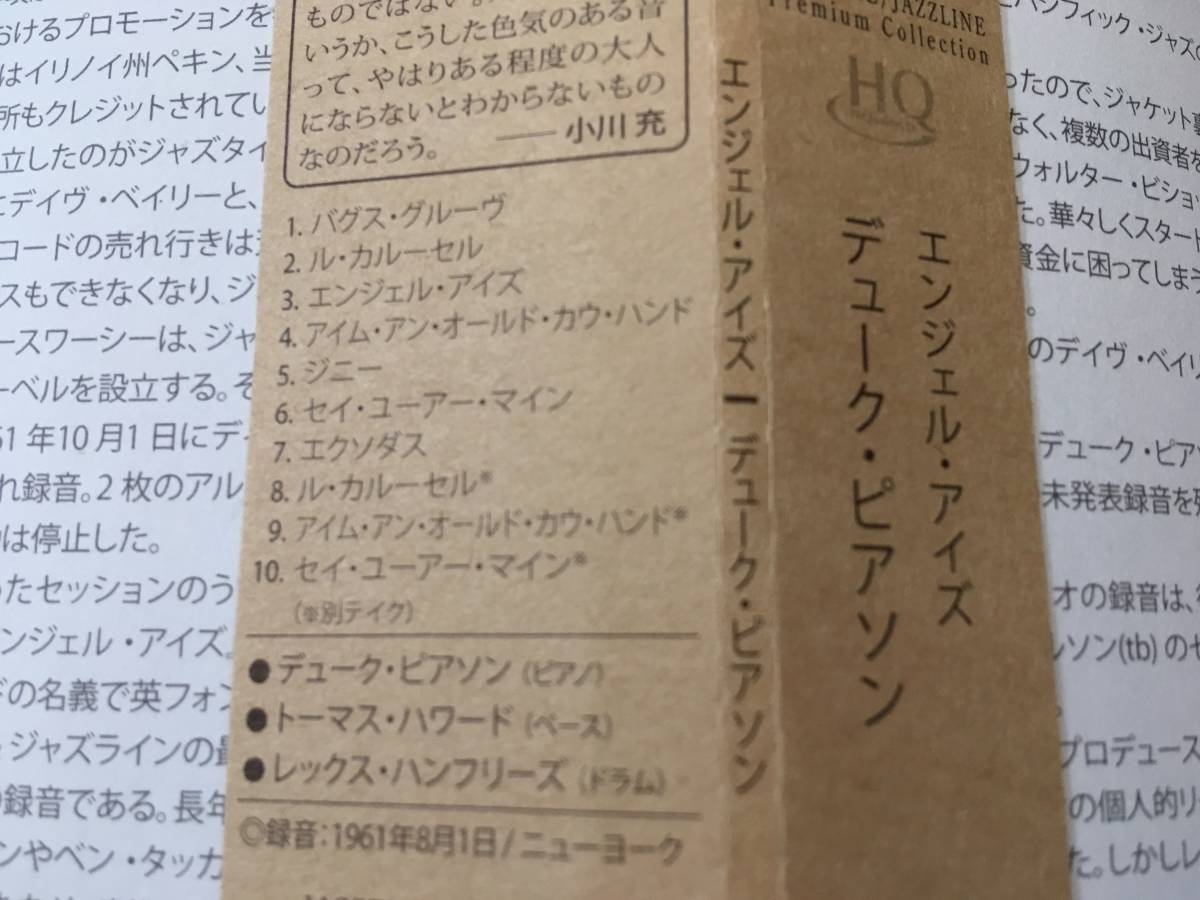 おけるプロモーションを
はイリノイ州ペキン、当
所もクレジットされてい
立したのがジャズタイ
とデイヴ・ベイリーと、
コードの売れ行きは
スもできなくなり、ジ
ースワーシーは、ジャ
ーベルを設立する。そ
61年10月1日にディ
れ録音。2枚のアル
は停止した。
ったセッションのう
ンジェル・アイズ。
ドの名義で英フォン
・ジャズラインの最
録音である。長年
ンやベン・タッカ
ものではない。
いうか、こうした色気のある音
って、やはりある程度の大人
にならないとわからないもの
なのだろう。 ―― 小川 充
1. バグス・グルーヴ
2. ル・カルーセル
3. エンジェル・アイズ
4. アイム・アン・オールド・カウ・ハンド
5. ジニー
6. セイ・ユーアー・マイン
7. エクソダス
8. ル・カルーセル※
9. アイム・アン・オールド・カウ・ハンド※
10. セイ・ユーアー・マイン※
(※別テイク)
●デューク・ピアソン (ピアノ)
●トーマス・ハワード (ベース)
●レックス・ハンフリーズ (ドラム)
◎録音:1961年8月1日/ニューヨーク
エンジェル・アイズ ー デューク・ピアソン
JAZZLINE
Premium Collection
HQ
エンジェル・アイズ
デューク・ピアソン
パシフィック・ジャズ
ったので、ジャケット裏
なく、複数の出資者を
ウォルター・ビショッ
た。華々しくスタート
資金に困ってしまう
。
のデイヴ・ベイリ
デューク・ピアソ
未発表録音を
オの録音は、
ルソン(tb)のセ
プロデュース
の個人的リ
た。しかしレ